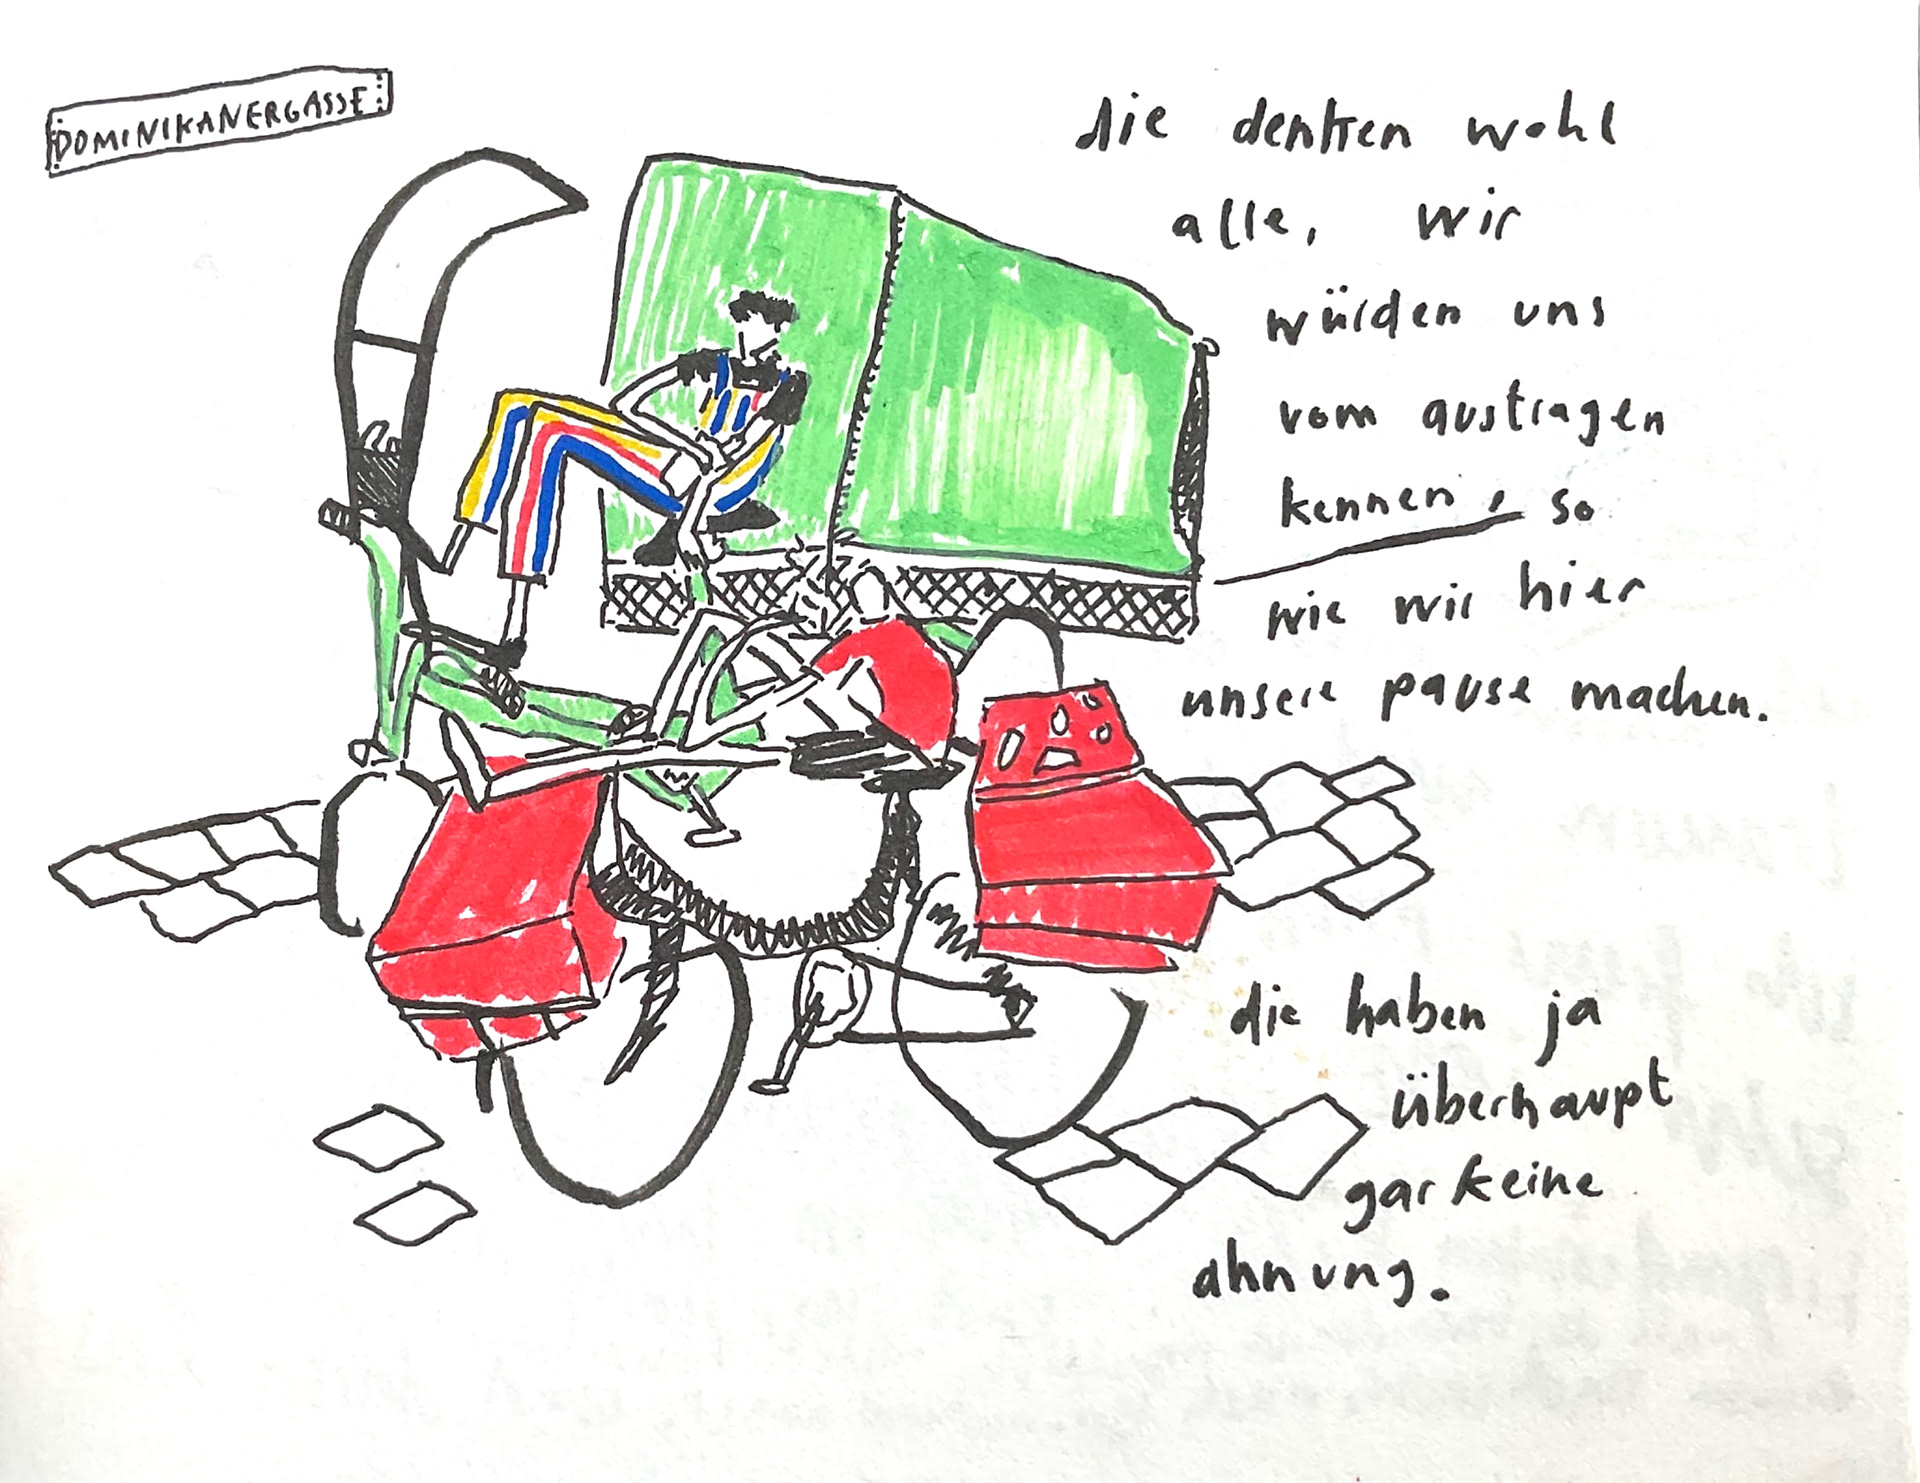 DOMINIKANERGASSE
die denken wohl
alle, wir
würden uns
vom austragen
kennen, so
wie wir hier
unsere pause machen.
die haben ja
überhaupt
gar keine
ahnung.